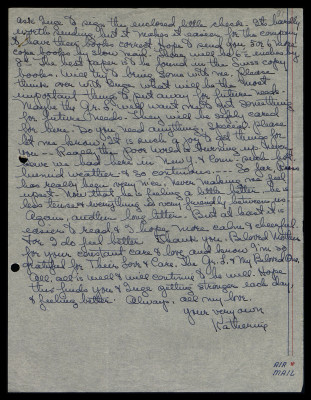 ask Inge to sign the enclosed both checks. It's hardly
worth sending but it makes it easier for the company
to have their books correct. Hope to send you six or more
copy books by slow mail. Hope you'll be enclosing
it. The best paper is to be found in the
books. Will try to bring some with me. Please
think over with Inge what will be the most
important things to put away for future needs.
Maybe the Gr. S. will want me to get something
for future needs. They will be safely cared
for here. Do you need anything special? Please
let me know. It is such a joy to get things for
you - Really the poor world is burning up. Never
have we had here in New Y. & Conn - such hot
humid weather & so continuous. - So far,
has really been very nice. Never making me feel
upset. Now that he is feeling a little better. It's
less tense & everything is very friendly between us
again, another long letter. But at least it is
easier to read, & I hope more calm & cheerful.
For I do feel better. Thank you, Beloved
for your constant care & love, and know I'm so
grateful for Their Love & Care. The Gr. S. & my Beloved One.
all is well & will continue to be well. Hope
this finds you & Inge getting stronger each day,
& feeling better. Always, all my love,
Your very own
Katherine
AIR
MAIL